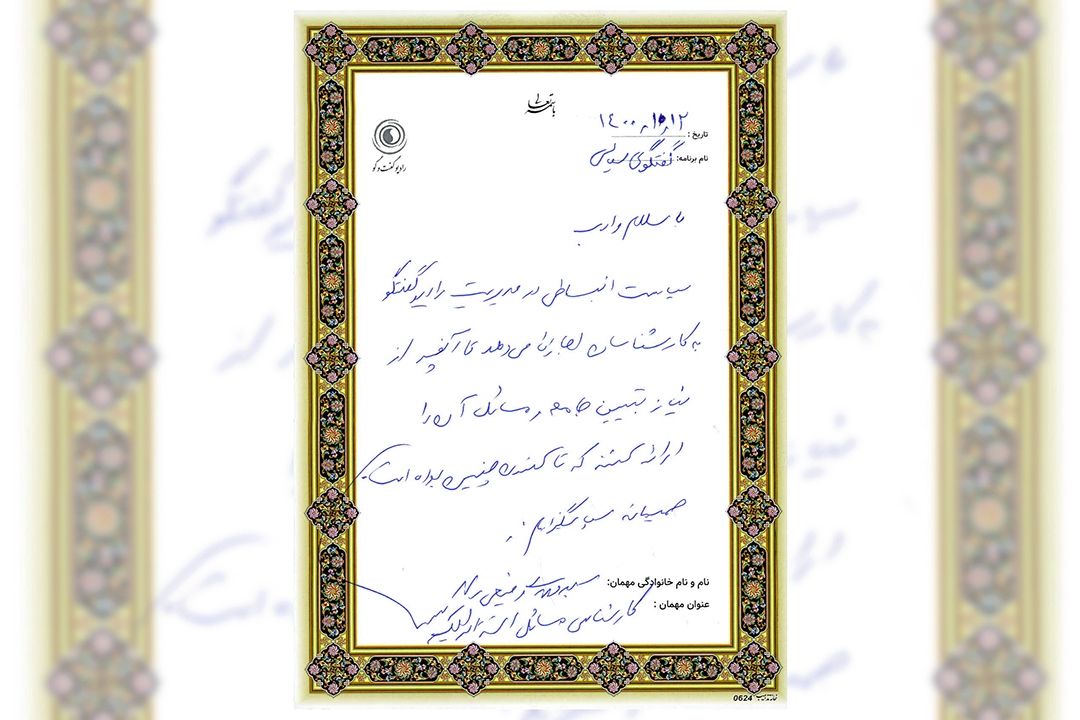 باسمه تعالی
رادیو گفت‌وگو
تاریخ : ۱۴۰۰،۱۰،۱۲
نام برنامه: گفتگوی سیاسی
با سلام و ادب
سیاست انبساطی در مدیریت رادیو گفتگو
به کارشناسان اجازه می‌دهد تا آنچه از
نیاز تبیین جامعه و مسائل آن را
ارائه کنند که تا کنون چنین بوده است.
صمیمانه سپاسگزارم.
نام و نام خانوادگی مهمان:
عنوان مهمان : کارشناس مسائل استراتژیک
0624